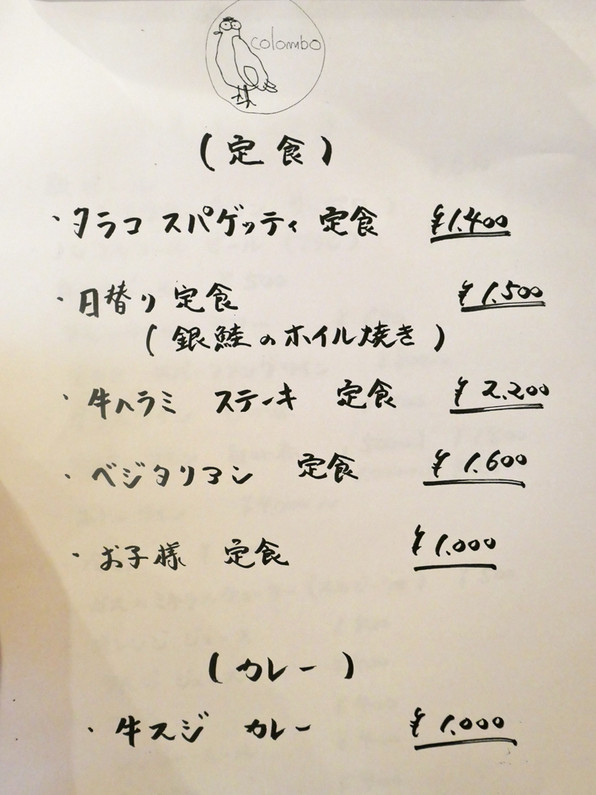 colombo
(定食)
・タラコ スパゲッティ 定食 ¥1.400
・日替り 定食 ¥1.500
(銀鮭のホイル焼き)
・牛ハラミ ステーキ 定食 ¥2.200
・ベジタリアン 定食 ¥1.600
・お子様 定食 ¥1.000
(カレー)
・牛スジ カレー ¥1.000